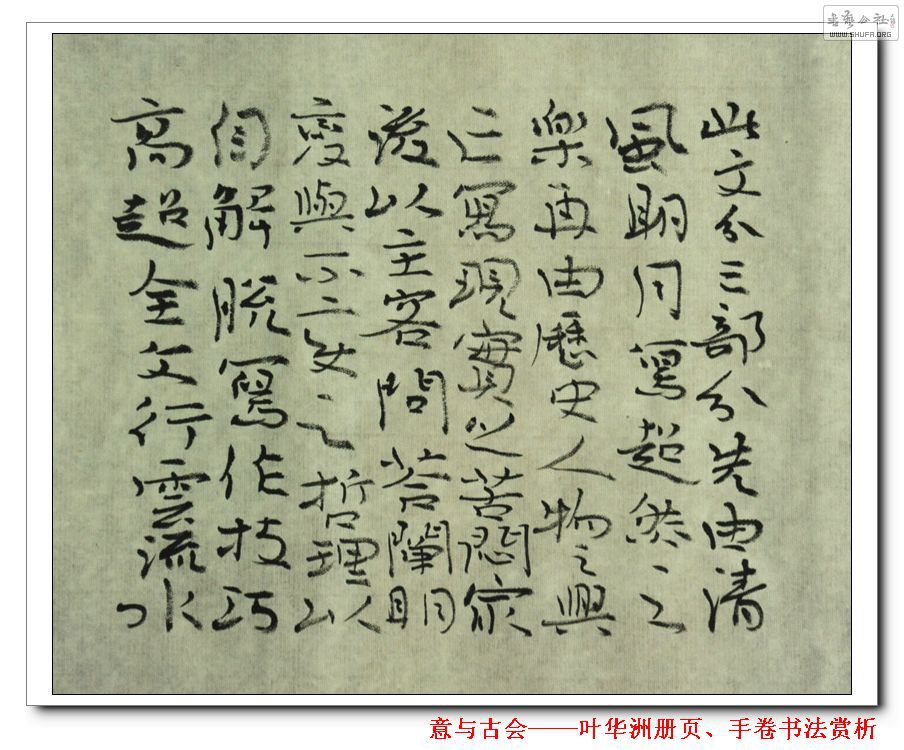 此文分三部分先由清
風明月寫超然之
樂再由歷史人物之興
亡寫現實之苦悶最
後以主客問答闡明
變與不變之哲理以
自解脱寫作技巧
高超全文行雲流水
意与古会——叶华洲册页、手卷书法赏析
书艺公社
WWW.SHUFA.ORG